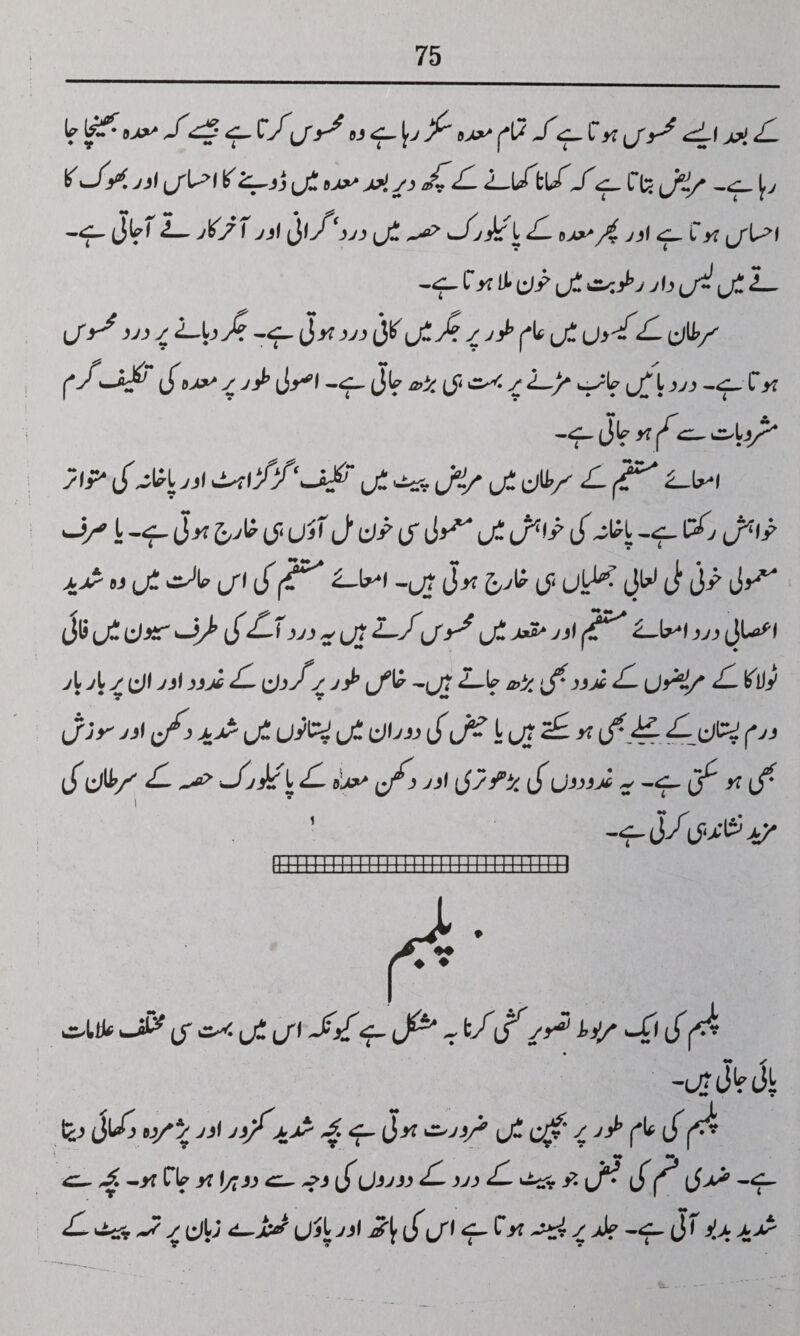 75
کے بعد ایسے محسوس ہوتا ہے کہ تمام معدہ سکڑ رہا ہے وہ محسوس کرتا ہے جیسے کہ معدہ کھینچا جا
رہا ہے۔ مریض بتاتا ہے کہ کھانا کھانے کے کچھ دیر بعد معدہ میں ڈوبنے کا احساس اور بھوک کا
احساس ہوتا ہے اور پھر معدہ کے پائیلورک حصہ میں درد، گرانی اور آخرکار قے آ جاتی ہے۔
قے میں لیس دار رطوبت میں خون ملا ہوتا ہے۔
سرطان کے کیسوں میں عام طور پر جگر میں کافی درد ہوتی ہے۔ جگر دبانے پر درد محسوس
ہوتا ہے۔ درد بائیں جانب مڑنے پر بہت ہی بڑھ جاتی ہے۔ اصولی طور پر معدہ کی تکلیف گرم
مشروبات سے کم ہو جاتی ہے۔
امعائے مستقیم کے سرطان میں مریض پیٹ میں تکلیف، گڑگڑاہٹ اور پاخانہ کی متواتر
خواہش رکھتا ہے۔ پاخانہ کی خواہش میں معمولی سی خون ملی آنوں ہی خارج ہوتی ہے۔ یا صرف
معمولی خونی ملی لعابی جھلیاں ہی خارج ہوتی ہیں۔ امعائے مستقیم کی اس حالت میں وہ شدید
اعصابی درد امعائے مستقیم اور مقعد میں محسوس کرتے ہیں یہ درد آگے کی طرف سیون میں فانی
ٹولاکا کے مریضوں کے غدود بھی بڑھ جاتے ہیں۔ خاص طور پر گردن کے غدود اور ان پر بار بار
درم پستان کے حملے بھی ہو سکتے ہیں یا حیض کی دوران میں پستانوں میں شدید دکھن اور سوزش
بھی ہو سکتی ہے۔ یہ غدودوں کی بڑھوتری اور دکھن معدہ کے پائیلورک حصہ کے سرطان کی
مزید نشاندہی کرتی ہے۔
پلمبم
پلمبم کی ایک مربوط تصویر کشی کرنا بہ مشکل ہے کیونکہ اس میں بہت سی مختلف علامات
پائی جاتی ہیں۔
پلمبم کی عام طور پر بچپن میں ضرورت ہوتی ہے بچہ شدید کمزور اور پژمردہ دکھائی دیتا
ہے۔ ضدی قسم کی قبض جو پیٹ کے درد کے دوروں کی وجہ سے دوہرا ہو جاتا ہو۔ بچہ سے
شدید بدبو آتی ہے۔ جلد پر پسینہ ہوتا ہے اس کی ہاتھ اور پاؤں ٹھنڈے زبان پر تہہ پیٹ کے